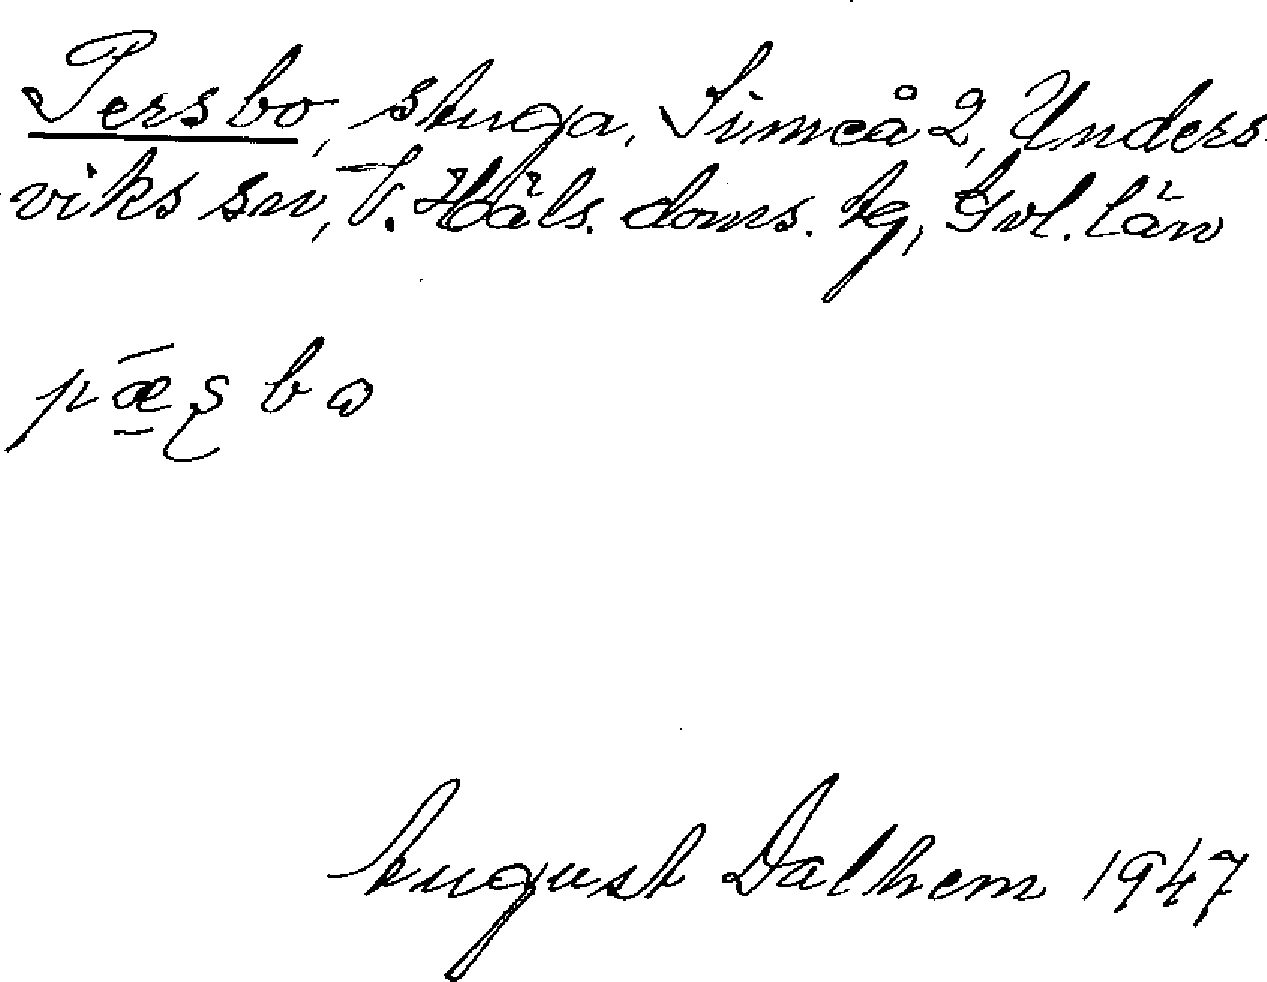 Persbo, stuga, Simeå 2, Unders-
viks sn, V. Häls. doms. tg, Gvl. län
pǣʂbo
August Dalhem 1947